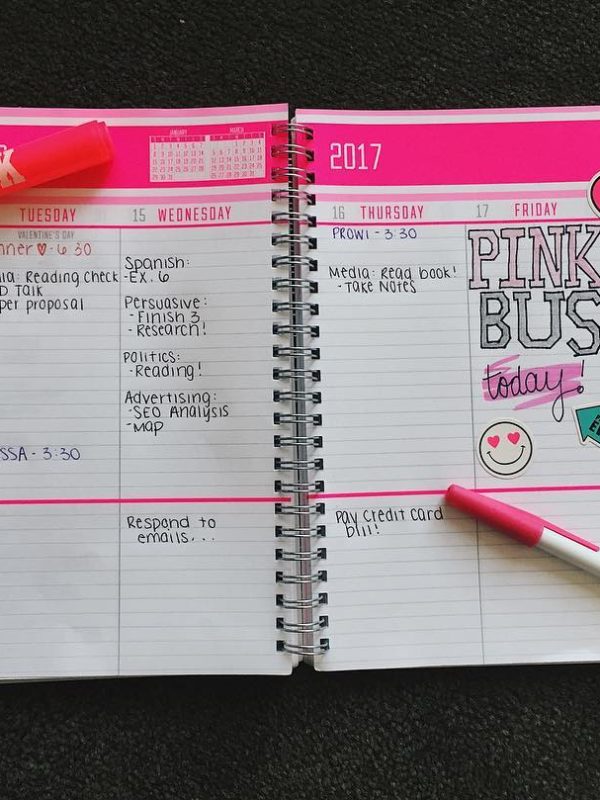 JANUARY
MARCH
2017
TUESDAY
VALENTINE'S DAY
6 30
Reading Check
Talk
proposal
- 3:30
15 WEDNESDAY
Spanish:
-EX. 6
Persuasive:
- Finish 3
- Research!
Politics:
- Reading!
Advertising:
- SEO Analysis
- Map
Respond to
emails...
16 THURSDAY
PROWL - 3:30
Media: Read book!
- Take Notes
Pay Credit Card
bill!
17 FRIDAY
PINK
BUS
today!